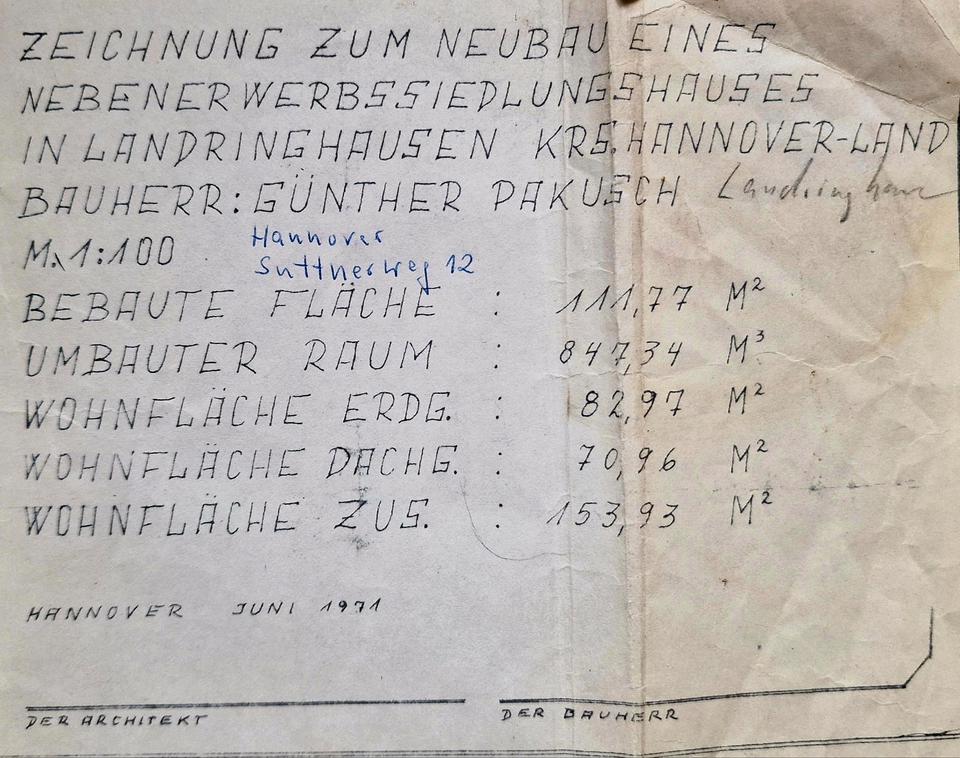 ZEICHNUNG ZUM NEUBAU EINES
NEBENERWERBSSIEDLUNGSHAUSES
IN LANDRINGHAUSEN KRS.HANNOVER-LAND
BAUHERR: GÜNTHER PAKUSCH Landringhause
M. 1:100 Hannover
Suttnerweg 12
BEBAUTE FLÄCHE : 111,77 M²
UMBAUTER RAUM : 847,34 M³
WOHNFLÄCHE ERDG. : 82,97 M²
WOHNFLÄCHE DACHG. : 70,96 M²
WOHNFLÄCHE ZUS. : 153,93 M²
HANNOVER JUNI 1971
DER ARCHITEKT DER BAUHERR